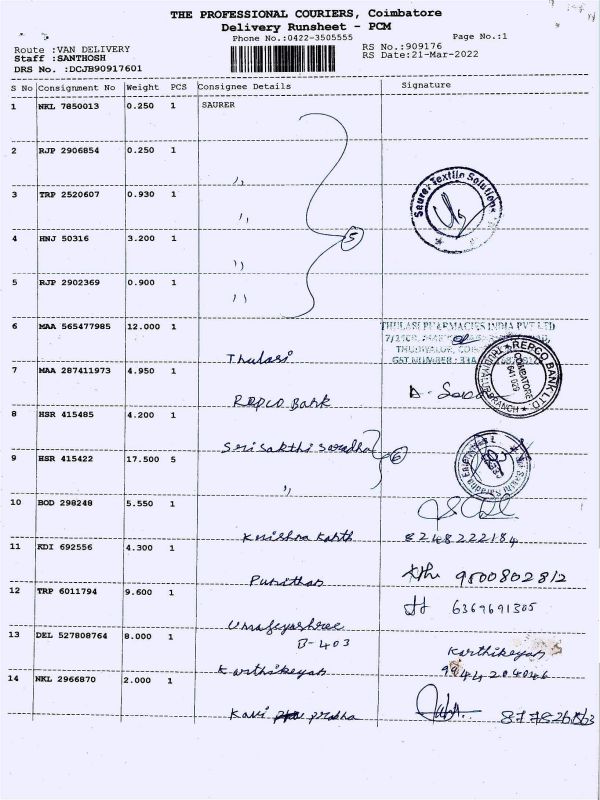 THE PROFESSIONAL COURIERS, Coimbatore
Delivery Runsheet - PCM
Phone No.:0422-3505555 Page No.:1
Route :VAN DELIVERY RS No.:909176
Staff :SANTHOSH RS Date:21-Mar-2022
DRS No. :DCJB90917601
S No Consignment No Weight PCS Consignee Details Signature
1 NKL 7850013 0.250 1 SAURER
2 RJP 2906854 0.250 1
,,
Saurer Textile Solutions
3 TRP 2520607 0.930 1
,,
4 HNJ 50316 3.200 1 5
,,
5 RJP 2902369 0.900 1
,,
6 MAA 565477985 12.000 1
THULASI PHARMACIES INDIA PVT LTD
Thulasi
REPCO BANK LTD.
COIMBATORE
641 029
BRANCH
7 MAA 287411973 4.950 1
REPCO Bank
8 HSR 415485 4.200 1
Sri Sakthi Saradha
9 HSR 415422 17.500 5 6
,,
10 BOD 298248 5.550 1
Krishna Karth 8248222184
11 KDI 692556 4.300 1
Punithan 9500802812
12 TRP 6011794 9.600 1
6369691305
Umajeyashree
B-403
13 DEL 527808764 8.000 1
Karthikeyan
Karthikeyan 9944204046
14 NKL 2966870 2.000 1
Kavi Prabha